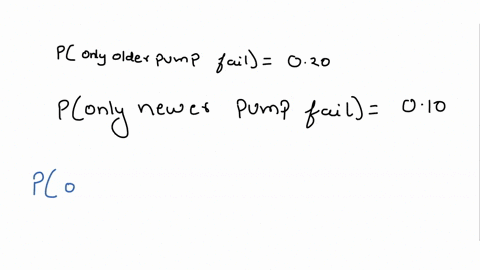 P( only older pump fail) = 0.20
P(only newer pump fail) = 0.10
P( o